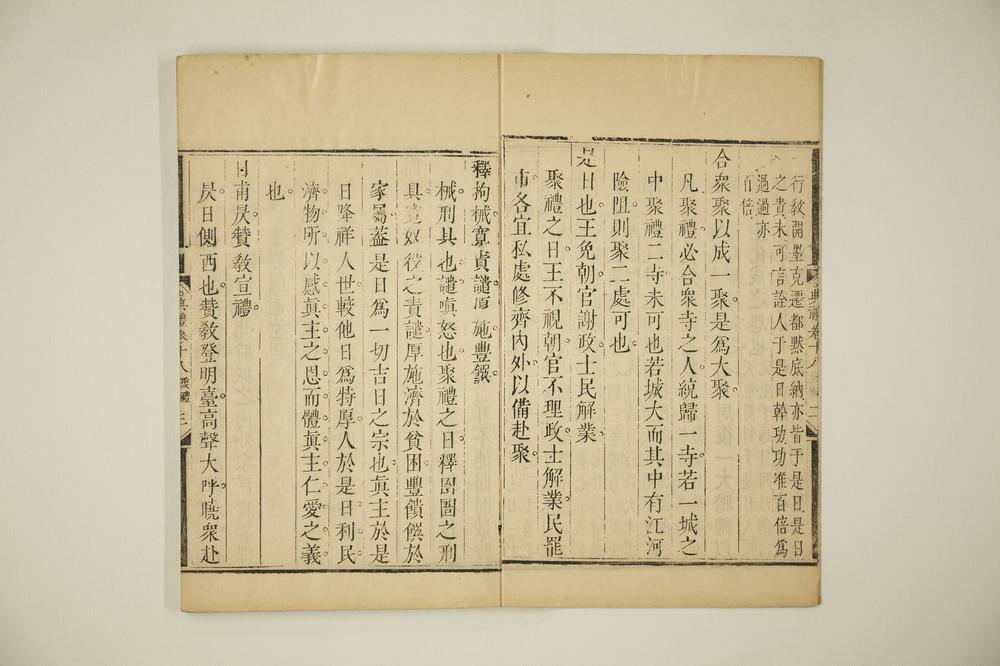 行教開墨克遷都黙底納亦皆于是日是日
之貴未可言詮人于是日幹功功准百倍爲
過過亦
百倍
合衆聚以成一聚是爲大聚
凡聚禮必合衆寺之人統歸一寺若一城之
中聚禮二寺未可也若城大而其中有江河
險阻則聚二處可也
是日也王免朝官謝政士民解業
聚禮之日王不視朝官不理政士解業民罷
市各宜私處修齊內外以備赴聚
典禮卷十八
二
釋拘械寬責譴厚施豐饌
械刑具也譴嗔怒也聚禮之日釋囹圄之刑
具寬奴役之責譴厚施濟於貧困豐饋饌於
家屬葢是日爲一切吉日之宗也眞主於是
日降祥人世較他日爲特厚人於是日利民
濟物所以感眞主之恩而體眞主仁愛之義
也
日甫昃贊教宣禮
昃日側西也贊教登明臺高聲大呼曉衆赴
典禮卷十八 聚禮 三